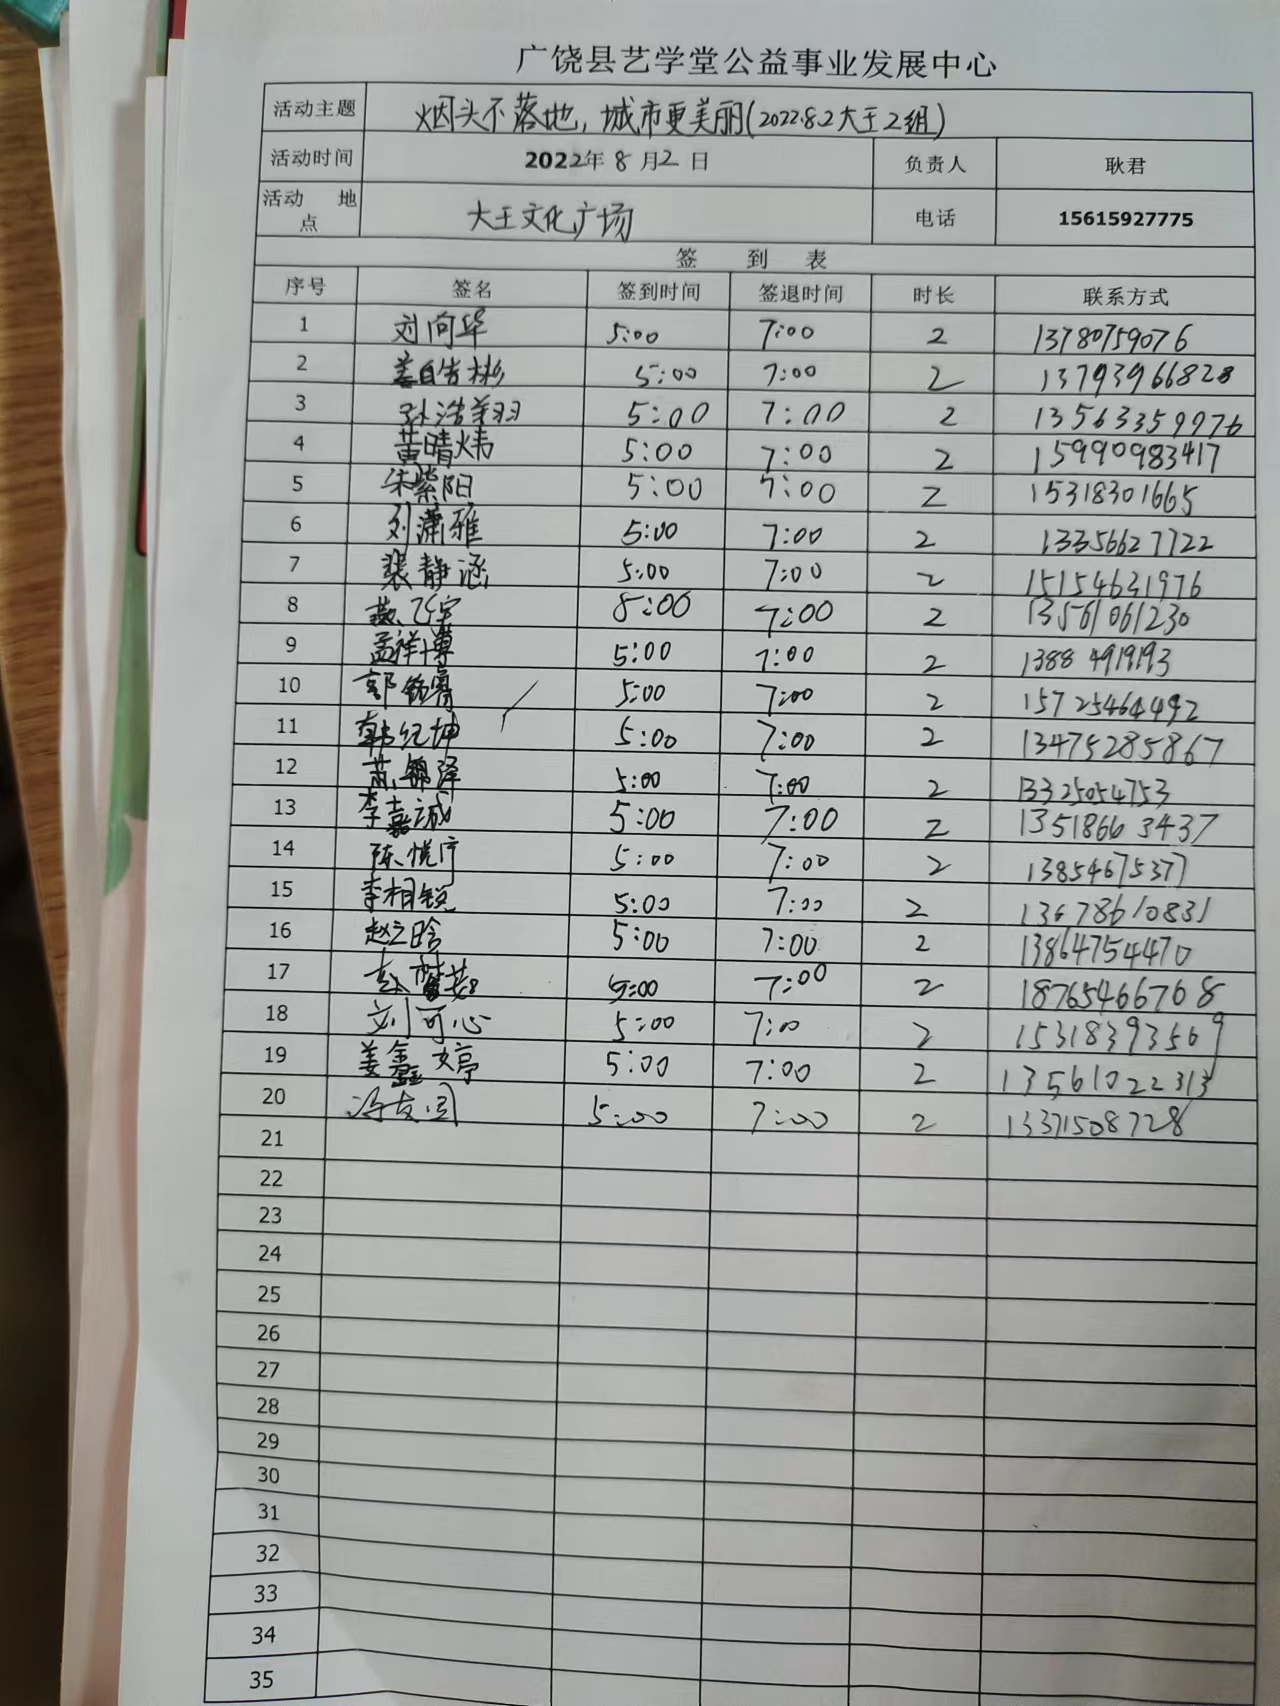 广饶县艺学堂公益事业发展中心
活动主题 烟头不落地,城市更美丽(2022.8.2大王2组)
活动时间 2022年8月2日 负责人 耿君
活动 地点 大王文化广场 电话 15615927775
签 到 表
序号 签名 签到时间 签退时间 时长 联系方式
1 刘向华 5:00 7:00 2 13780759076
2 姜皓彬 5:00 7:00 2 13793966828
3 孙浩翔 5:00 7:00 2 13563359976
4 黄晴炜 5:00 7:00 2 15990983417
5 朱紫阳 5:00 7:00 2 15318301665
6 刘潇雅 5:00 7:00 2 13356627722
7 裴静涵 5:00 7:00 2 15154631976
8 燕飞宇 8:00 7:00 2 13561061230
9 孟祥博 5:00 7:00 2 13884919193
10 郭 5:00 7:00 2 15725464492
11 韩纪坤 5:00 7:00 2 13475285867
12 锦泽 5:00 7:00 2 13325054753
13 李嘉诚 5:00 7:00 2 13518663437
14 陈悦 5:00 7:00 2 13854675377
15 李相锐 5:00 7:00 2 13678610831
16 赵之晗 5:00 7:00 2 13864754470
17 5:00 7:00 2 18765466768
18 刘可心 5:00 7:00 2 15318393569
19 姜鑫婷 5:00 7:00 2 13561022313
20 冯友国 5:00 7:00 2 13371508728
21
22
23
24
25
26
27
28
29
30
31
32
33
34
35